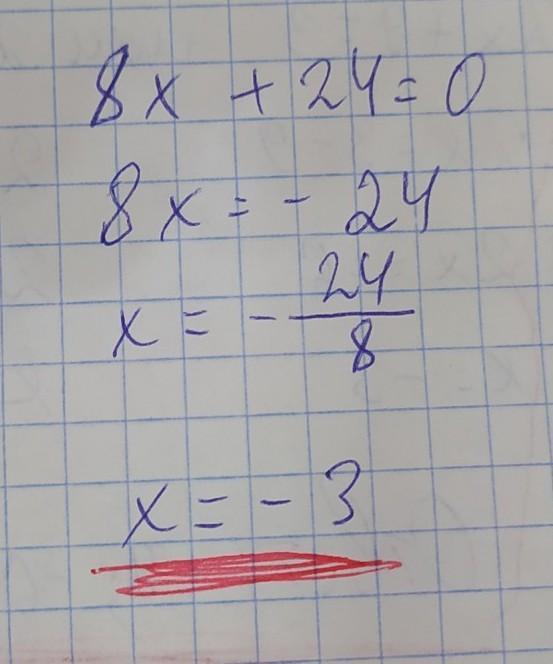 8x + 24 = 0
8x = - 24
x = - 24/8
x = - 3